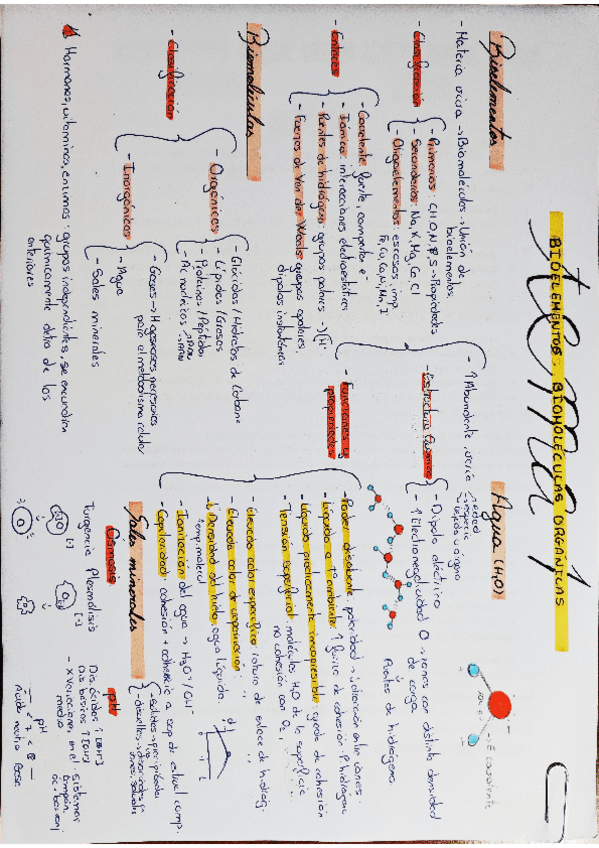 Tema 1
BIOELEMENTOS, BIOMOLÉCULAS ORGÁNICAS
Bioelementos
- Materia viva → Biomoléculas → Unión de
bioelementos
- Clasificación
- Primarios: C,H,O,N,P,S → Propiedades
- Secundarios: Na, K, Mg, Ca, Cl
- Oligoelementos: escasos, imp.
Fe, Cu, Co, Mn, I
- Enlaces
- Covalente: fuerte, comparten e⁻
- Iónico: interacciones electrostáticas
- Puentes de hidrógeno: grupos polares
- Fuerzas de Van der Waals: grupos apolares,
dipolos instantáneos
Biomoléculas
- Clasificación
- Orgánicos
- Glúcidos / Hidratos de Carbono
- Lípidos / Grasas
- Proteínas / Péptidos
- Ác. nucleicos
- Inorgánicos
- Gases →
para el metabolismo celular
- Agua
- Sales minerales
Hormonas, vitaminas, enzimas: grupos independientes, se encuentran
químicamente dentro de los
anteriores
Agua (H₂O)
- ↑ Abundante
- Estructura Química
- Dipolo eléctrico
- ↑ Electronegatividad O → zonas con distinta densidad
de carga
Puentes de hidrógeno
covalente
- Funciones y
propiedades
- Poder disolvente: polaridad → interacción entre iones
- Líquido a Tª ambiente: ↑ fuerza de cohesión P. hidrógeno
- Líquido prácticamente incompresible: grado de cohesión
- Tensión superficial: moléculas H₂O de la superficie
no cohesión con O₂
- Elevado calor específico: rotura de enlace de hidróg.
- Elevado calor de vaporización: " "
- ↓ Densidad del hielo: agua líquida
- Ionización del agua → H₃O⁺ / OH⁻
- Capilaridad: cohesión + adhesión a sup de estruct comp.
Sales minerales
- sólidas → precipitadas
- disueltas → disociadas
Ósmosis
Turgencia Plasmólisis
pH
Dis. ácidas ↑ [H⁺]
Dis. básicas ↑ [OH⁻]
- X Variaciones en el
medio
sistemas
pH
- < 7 < 8 -
Ácido neutro Base